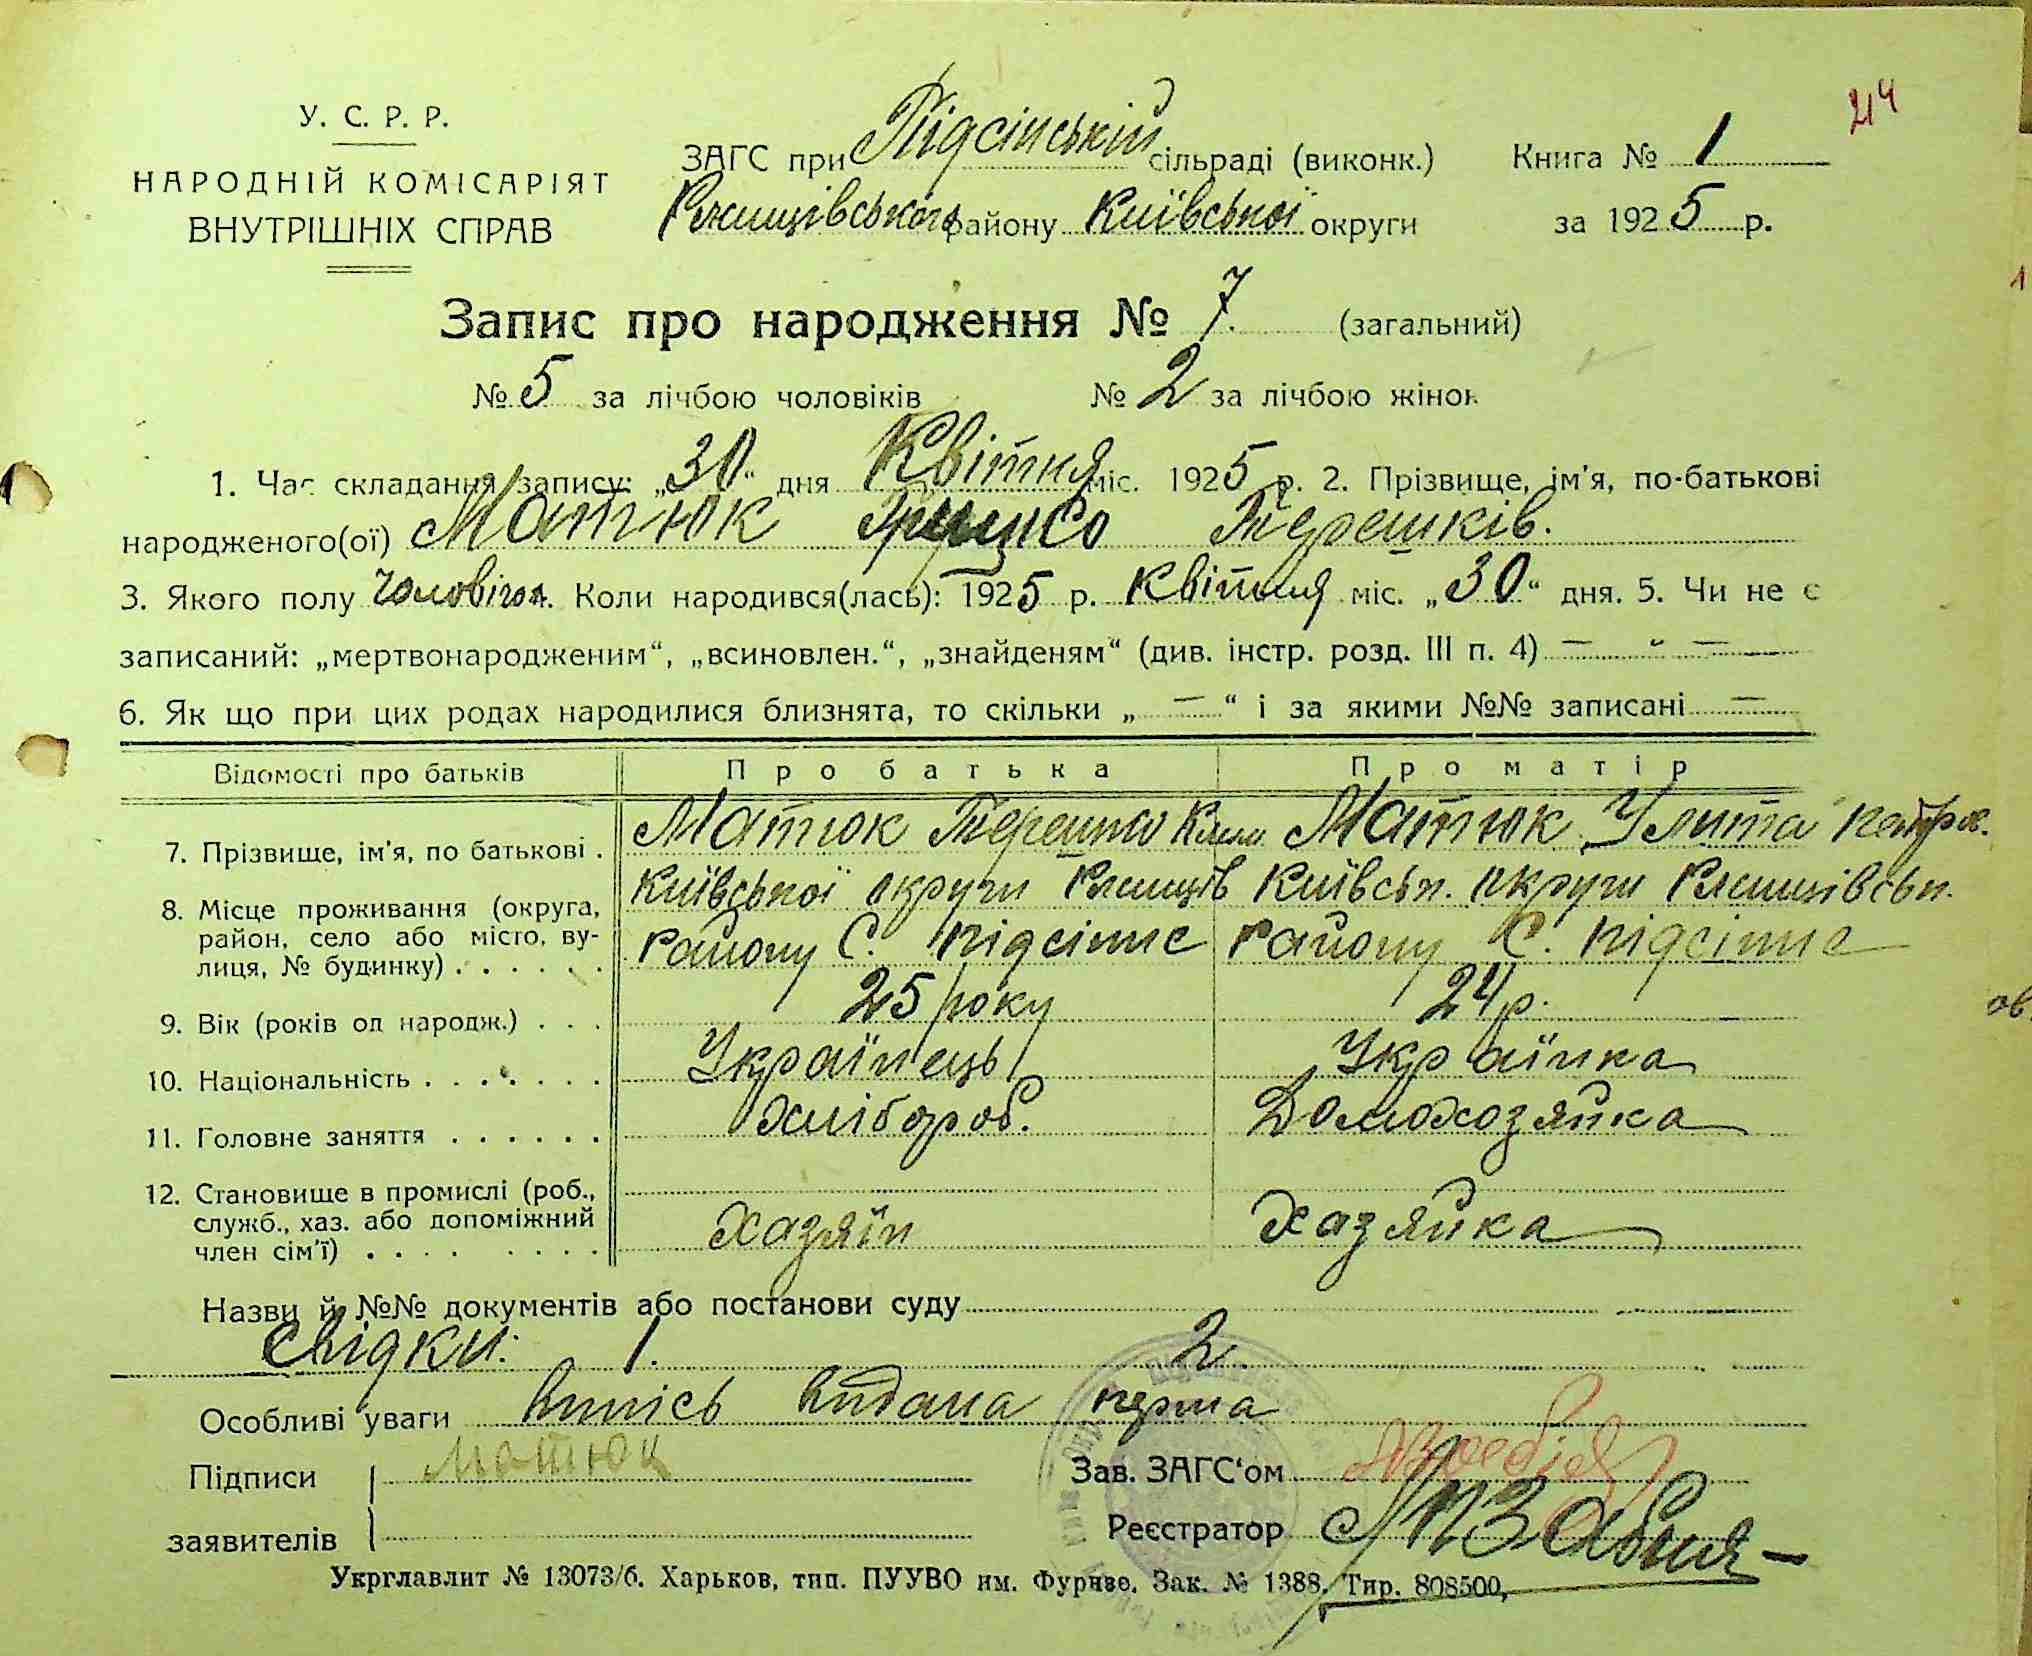 24
У. С. Р. Р.
НАРОДНІЙ КОМІСАРІЯТ
ВНУТРІШНІХ СПРАВ
ЗАГС при Підсінській сільраді (виконк.)
Ржищівського району Київської округи
Книга № 1
за 1925 р.
Запис про народження № 7. (загальний)
№ 5 за лічбою чоловіків № 2 за лічбою жінок
1. Час складання запису: „30“ дня Квітня міс. 1925 р. 2. Прізвище, ім'я, по-батькові
народженого(ої) Матюк Грицко Терешків.
3. Якого полу чоловічої. Коли народився(лась): 1925 р. Квітня міс. „30“ дня. 5. Чи не є
записаний: „мертвонародженим“, „всиновлен.“, „знайденям“ (див. інстр. розд. III п. 4) — " —
6. Як що при цих родах народилися близнята, то скільки „ — “ і за якими №№ записані —
Відомості про батьків Про батька Про матір
7. Прізвище, ім'я, по батькові . Матюк Терешко Матюк Улита
8. Місце проживання (округа, Київської округи Ржищів Київськ. округи Ржищівськ.
район, село або місто, ву- Району С. Підсінне Району С. Підсінне
лиця, № будинку) . . . . . .
9. Вік (років од народж.) . . . 25 року 24 р.
10. Національність . . . . . . Українець Українка
11. Головне заняття . . . . . . Хлібороб. Домохозяйка
12. Становище в промислі (роб.,
служб., хаз. або допоміжний Хазяїн Хазяйка
член сім'ї) . . . . . . . .
Назви й №№ документів або постанови суду
Свідки: 1. 2.
Особливі уваги Випісь видана перша
Підписи Матюк Зав. ЗАГС'ом
заявителів Реєстратор
Укрглавлит № 13073/б. Харьков, тип. ПУУВО им. Фрунзе. Зак. № 1388. Тир. 808500,